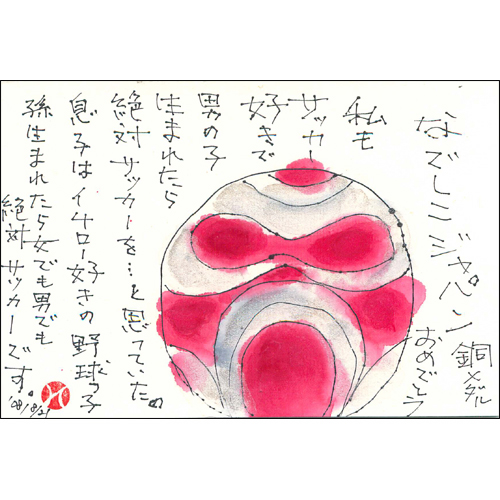 なでしこジャパン
銅メダル
おめでとう
私も
サッカー
好きで
男の子
生まれたら
絶対サッカーを…と思っていた。
息子はイチロー好きの野球っ子
孫生まれたら女でも男でも
絶対サッカーです。
'08/8/21